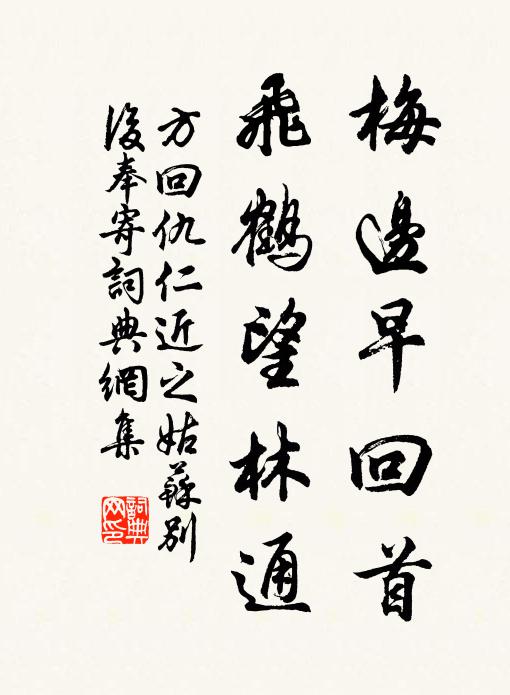 梅邊早回首
飛鶴望林通
方回仇仁近之姑蘇別
後奉寄詞典網集
詞典
网印